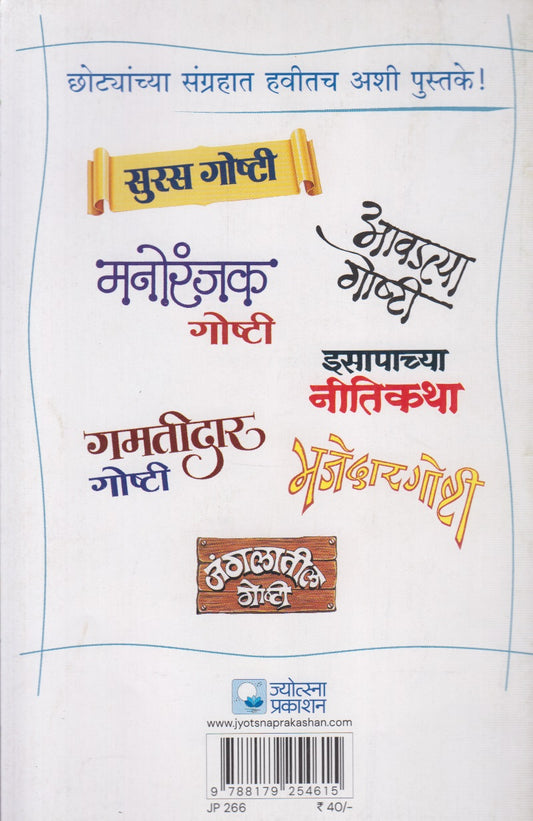 छोट्यांच्या संग्रहात हवीतच अशी पुस्तके!
सुरस गोष्टी
आवडत्या
गोष्टी
मनोरंजक
गोष्टी
इसापाच्या
नीतिकथा
गमतीदार
गोष्टी
मजेदार गोष्टी
जंगलातील
गोष्टी
ज्योत्स्ना
प्रकाशन
www.jyotsnaprakashan.com
9 788179 254615
JP 266 ₹ 40/-